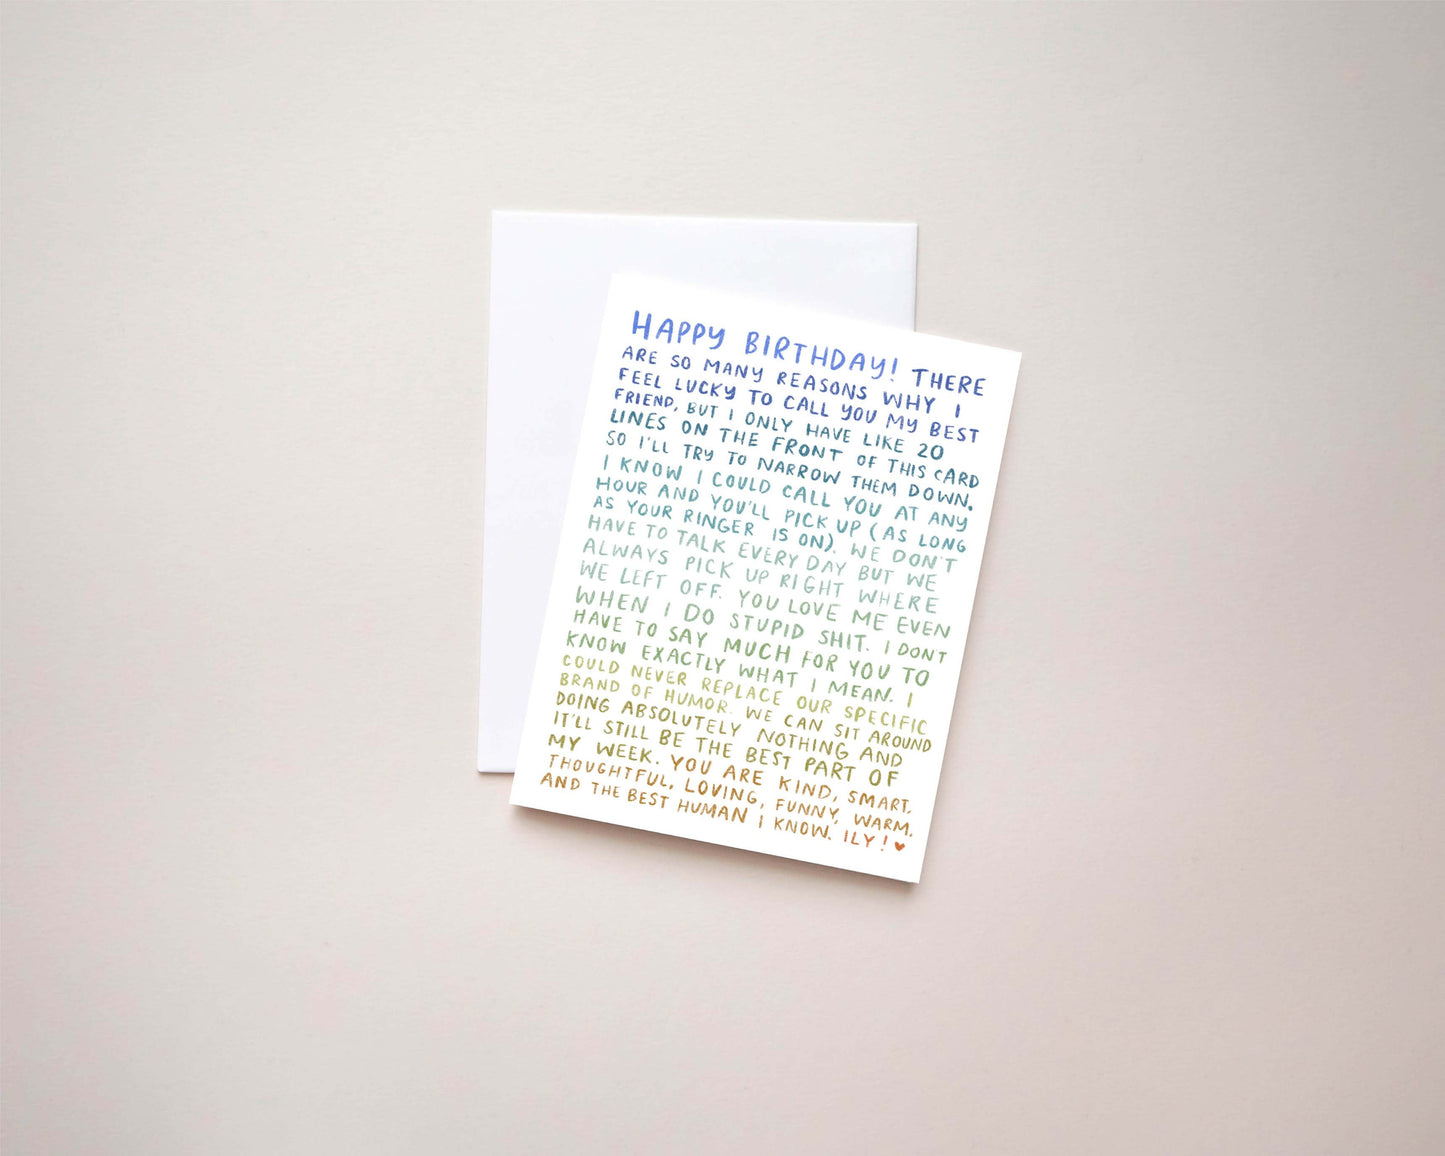 HAPPY BIRTHDAY! THERE
ARE SO MANY REASONS WHY I
FEEL LUCKY TO CALL YOU MY BEST
FRIEND, BUT I ONLY HAVE LIKE 20
LINES ON THE FRONT OF THIS CARD
SO I'LL TRY TO NARROW THEM DOWN.
I KNOW I COULD CALL YOU AT ANY
HOUR AND YOU'LL PICK UP (AS LONG
AS YOUR RINGER IS ON). WE DON'T
HAVE TO TALK EVERY DAY BUT WE
ALWAYS PICK UP RIGHT WHERE
WE LEFT OFF. YOU LOVE ME EVEN
WHEN I DO STUPID SHIT. I DONT
HAVE TO SAY MUCH FOR YOU TO
KNOW EXACTLY WHAT I MEAN. I
COULD NEVER REPLACE OUR SPECIFIC
BRAND OF HUMOR. WE CAN SIT AROUND
DOING ABSOLUTELY NOTHING AND
IT'LL STILL BE THE BEST PART OF
MY WEEK. YOU ARE KIND, SMART,
THOUGHTFUL, LOVING, FUNNY, WARM,
AND THE BEST HUMAN I KNOW. ILY! ♥